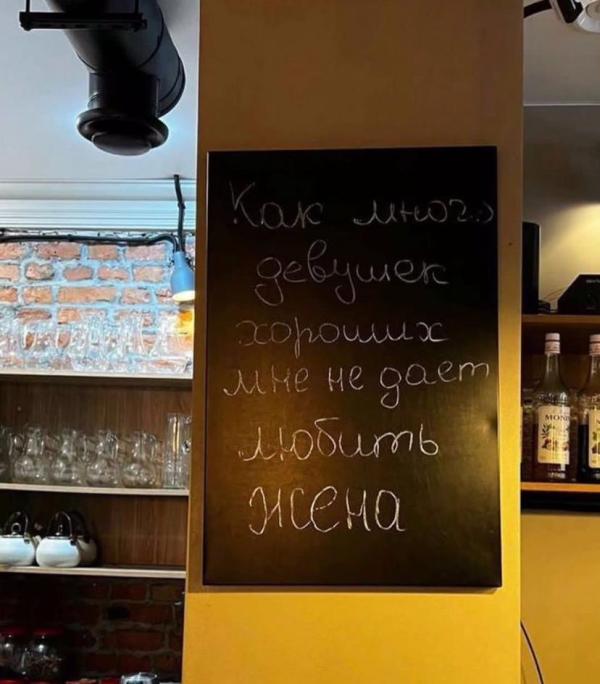 Как много
девушек
хороших
мне не дает
любить
жена
MONIN